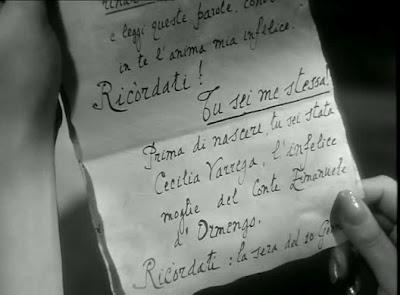 e leggi queste parole,
in te l'anima mia infelice.
Ricòrdati!
Tu sei me stessa!
Prima di nascere, tu sei stata
Cecilia Varrega, l'infelice
moglie del Conte Emanuele
d'Ormengo.
Ricòrdati: la sera del 10